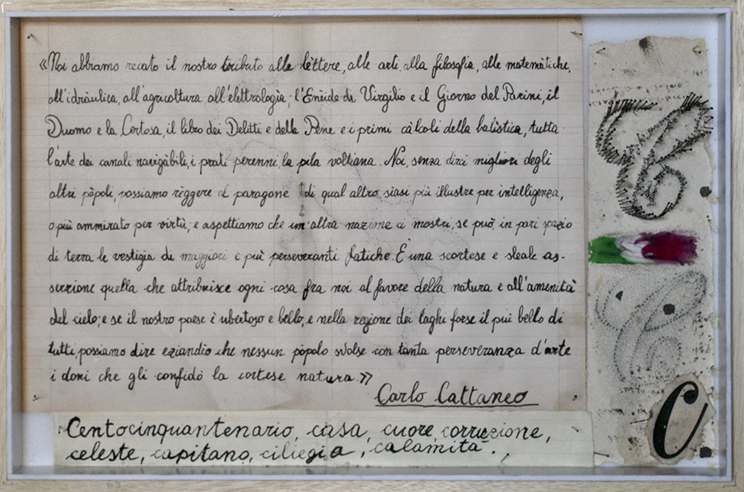 «Noi abbiamo recato il nostro tributo alle lèttere, alle arti, alla filosofia, alle matemàtiche,
all'idràulica, all'agricoltura, all'elettrologìa; l'Enèide di Virgilio e il Giorno del Parini, il
Duomo e la Certosa, il libro dei Delitti e delle Pene e i primi càlcoli della balìstica, tutta
l'arte dei canali navigàbili, i prati perenni, la pila voltiana. Noi, senza dirci migliori degli
altri pòpoli, possiamo règgere al paragone di qual altro siasi più illustre per intelligenza,
o più ammirato per virtù; e aspettiamo che un'altra nazione ci mostri, se può, in pari spazio
di terra le vestigia di maggiori e più perseveranti fatiche. È una scortese e sleale as-
serzione quella che attribuisce ogni cosa fra noi al favore della natura e all'amenità
del cielo; e se il nostro paese è ubertoso e bello, e nella regione dei laghi forse il più bello di
tutti, possiamo dire eziandìo che nessun pòpolo svolse con tanta perseveranza d'arte
i doni che gli confidò la cortese natura.»
Carlo Cattaneo
Centocinquantenario, casa, cuore, corruzione,
celeste, capitano, ciliegia, calamita.,
C
C
C